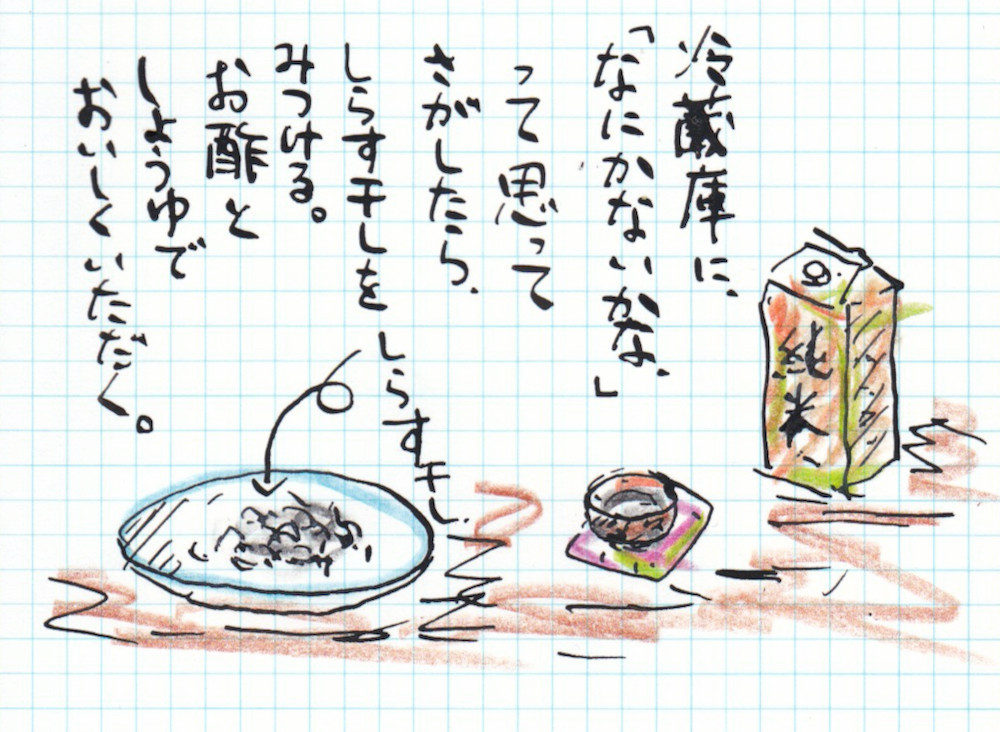 冷蔵庫に、
「なにかないかな、」
って思って
さがしたら、
しらす干しを
みつける。
お酢と
しょうゆで
おいしくいただく。
しらす干し
純米